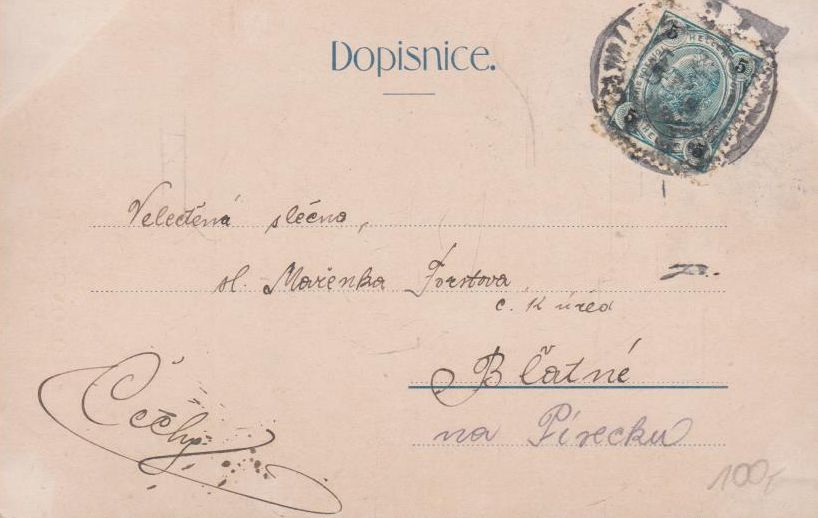 Dopisnice.
5 5 5 5
Velectěná slečna,
sl. Mařenka Forstova
c. k úřed
Blatné
na Písecku
Čechy
100,-